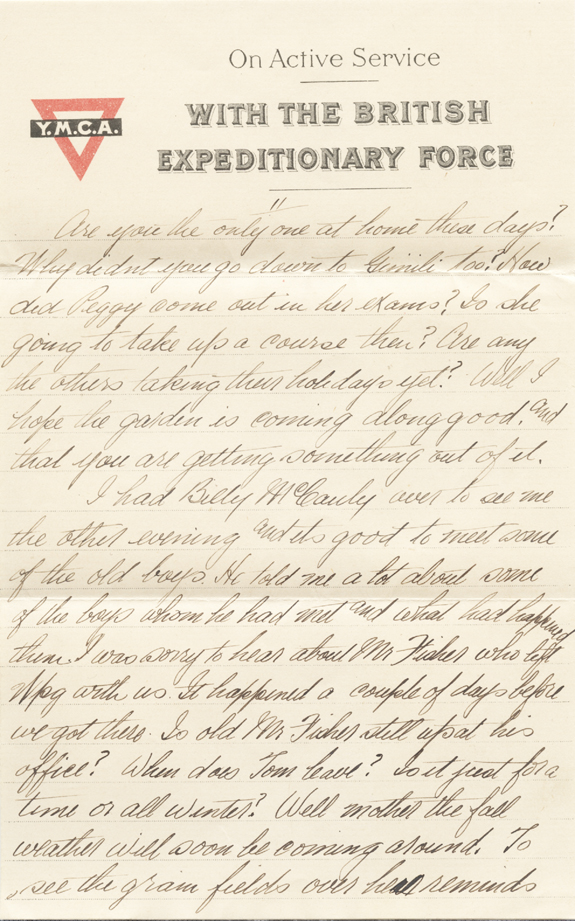 On Active Service
WITH THE BRITISH
Y.M.C.A.
EXPEDITIONARY FORCE
"
Are you the only one at home these days?
Why didnt you go down to Gimili too? How
did Peggy come out in her exams? Is she
going to take up a course then? Are any
the others taking their holidays yet? Well I
hope the garden is coming along good. and
that you are getting something out of it.
I had Billy McCauly over to see me
the other evening and its good to meet some
of the old boys. He told me a lot about some
of the boys whom he had met and what had happened
them. I was sorry to hear about Mr Fisher who left
Wpg with us. It happened a couple of days before
we got there. Is old Mr. Fisher still up at his
office? When does Tom leave? Is it just for a
time or all winter? Well mother the fall
weather will soon be coming around. To
see the grain fields over here reminds